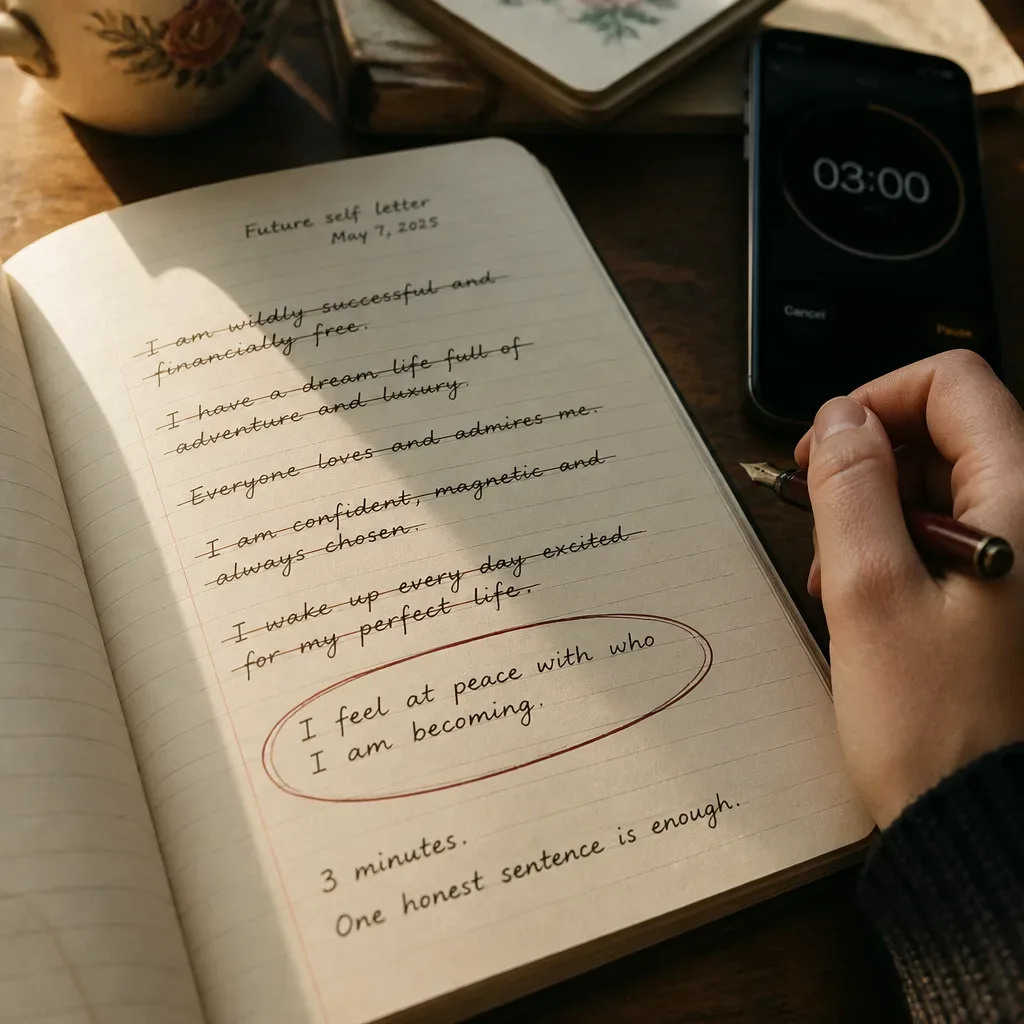 Future self letter
May 7, 2025
I am wildly successful and
financially free.
I have a dream life full of
adventure and luxury.
Everyone loves and admires me.
I am confident, magnetic and
always chosen.
I wake up every day excited
for my perfect life.
I feel at peace with who
I am becoming.
3 minutes.
One honest sentence is enough.
03:00
Cancel
Pause